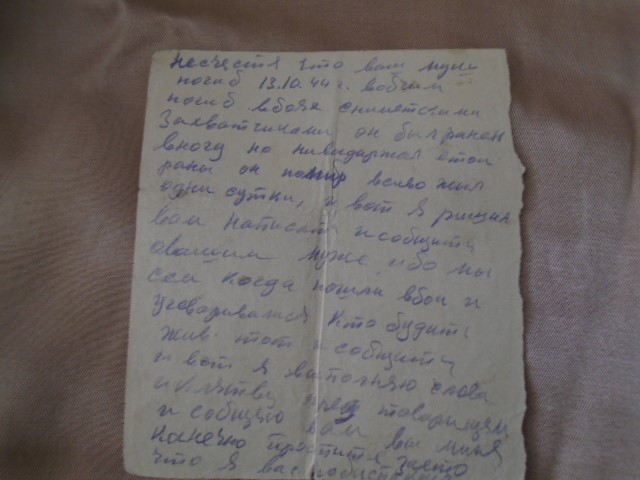 несчестя что ваш муж
погиб 13.10.44 г. вобчим
погиб вбоях сниметскими
Захватчиками он был ранен
вногу но невыдержал етой
раны он помир всево жил
одни сутки, и вот я решил
вам написать и сообщить
овашим муже, ибо мы
сем когда пошли вбой и
уговаривались кто будить
жив. тот и сообщить
и вот я выполняю слова
и клятву пред товарищем
и сообщяю вам вы миня
канечно простите заето
что я вас